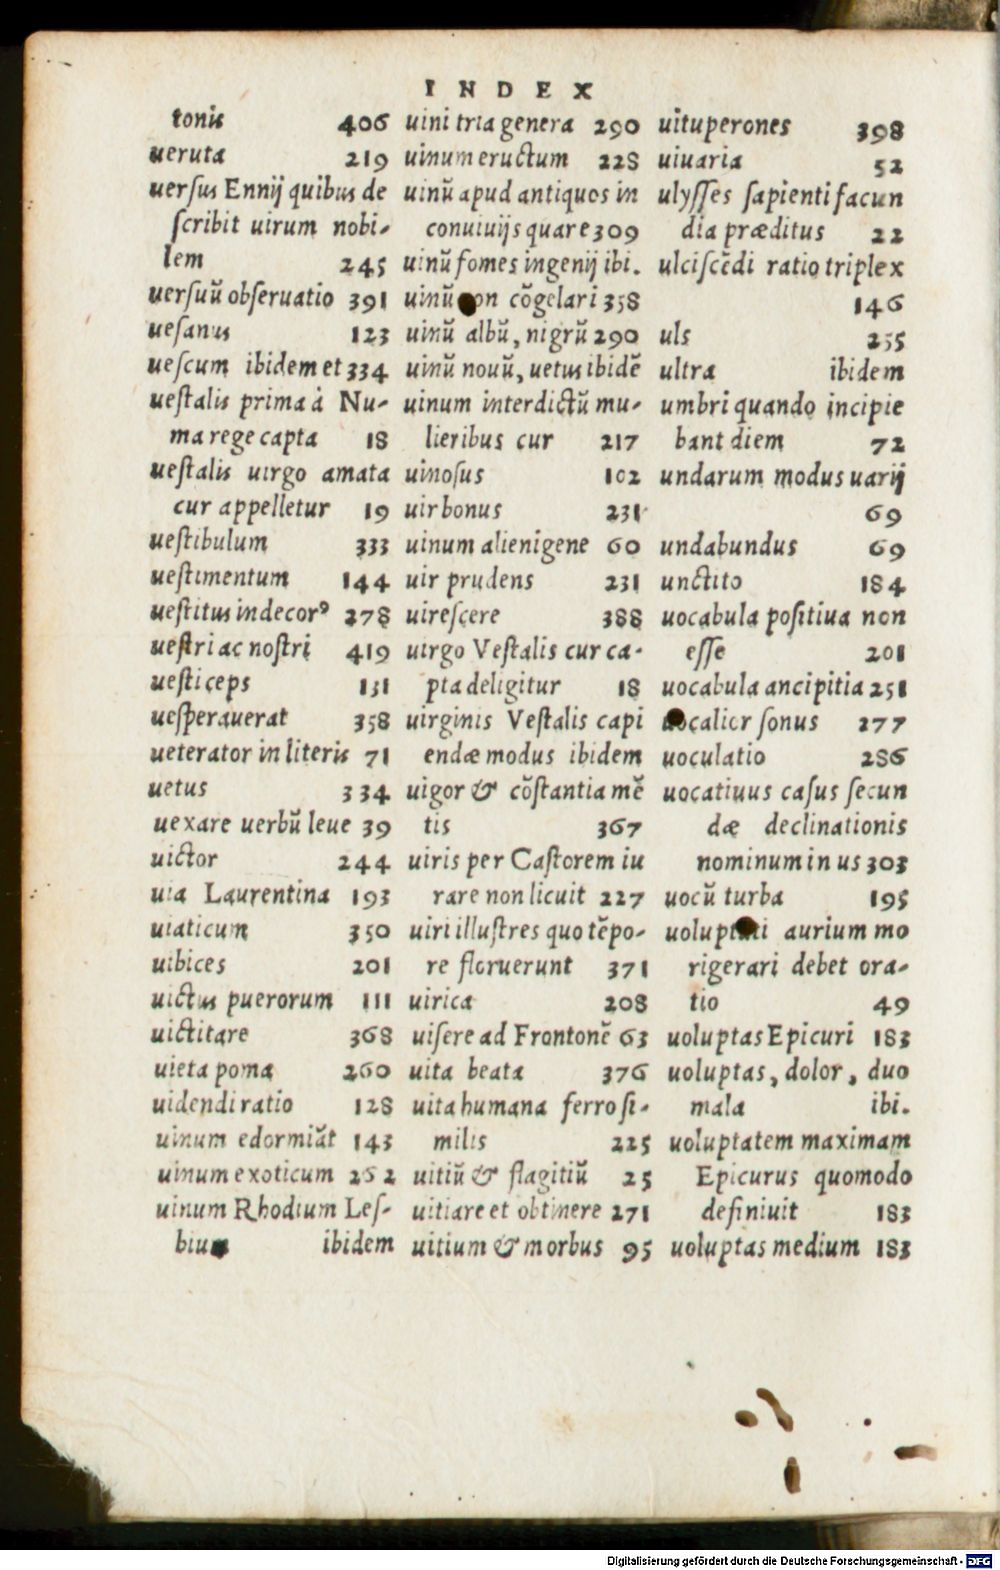 INDEX
tonis 406
ueruta 219
uersus Ennij quibus de
scribit uirum nobi-
lem 245
uersuū obseruatio 391
uesanus 123
uescum ibidem et 334
uestalis prima à Nu-
ma rege capta 18
uestalis uirgo amata
cur appelletur 19
uestibulum 333
uestimentum 144
uestitus indecorꝰ 278
uestri ac nostri 419
uesticeps 131
uesperauerat 358
ueterator in literis 71
uetus 334
uexare uerbū leue 39
uictor 244
uia Laurentina 193
uiaticum 350
uibices 201
uictus puerorum 111
uictitare 368
uieta poma 260
uidendi ratio 128
uinum edormiāt 143
uinum exoticum 262
uinum Rhodium Les-
bium ibidem
uini tria genera 290
uinum eructum 228
uinū apud antiquos in
conuiuijs quare 309
uinū fomes ingenij ibi.
uinū non cōgelari 358
uinū albū, nigrū 290
uinū nouū, uetus ibidē
uinum interdictū mu-
lieribus cur 217
uinosus 102
uir bonus 231
uinum alienigene 60
uir prudens 231
uirescere 388
uirgo Vestalis cur ca-
pta deligitur 18
uirginis Vestalis capi
endæ modus ibidem
uigor & cōstantia mē
tis 367
uiris per Castorem iu
rare non licuit 227
uiri illustres quo tēpo-
re floruerunt 371
uirica 208
uisere ad Frontonē 63
uita beata 376
uita humana ferro si-
milis 225
uitiū & flagitiū 25
uitiare et obtinere 271
uitium & morbus 95
uituperones 398
uiuaria 52
ulysses sapienti facun
dia præditus 22
ulciscēdi ratio triplex
146
uls 255
ultra ibidem
umbri quando incipie
bant diem 72
undarum modus uarij
69
undabundus 69
unctito 184
uocabula positiua non
esse 201
uocabula ancipitia 251
uocalior sonus 277
uoculatio 286
uocatiuus casus secun
dæ declinationis
nominum in us 303
uocū turba 195
uoluptati aurium mo
rigerari debet ora-
tio 49
uoluptas Epicuri 183
uoluptas, dolor, duo
mala ibi.
uoluptatem maximam
Epicurus quomodo
definiuit 183
uoluptas medium 183
Digitalisierung gefördert durch die Deutsche Forschungsgemeinschaft - DFG